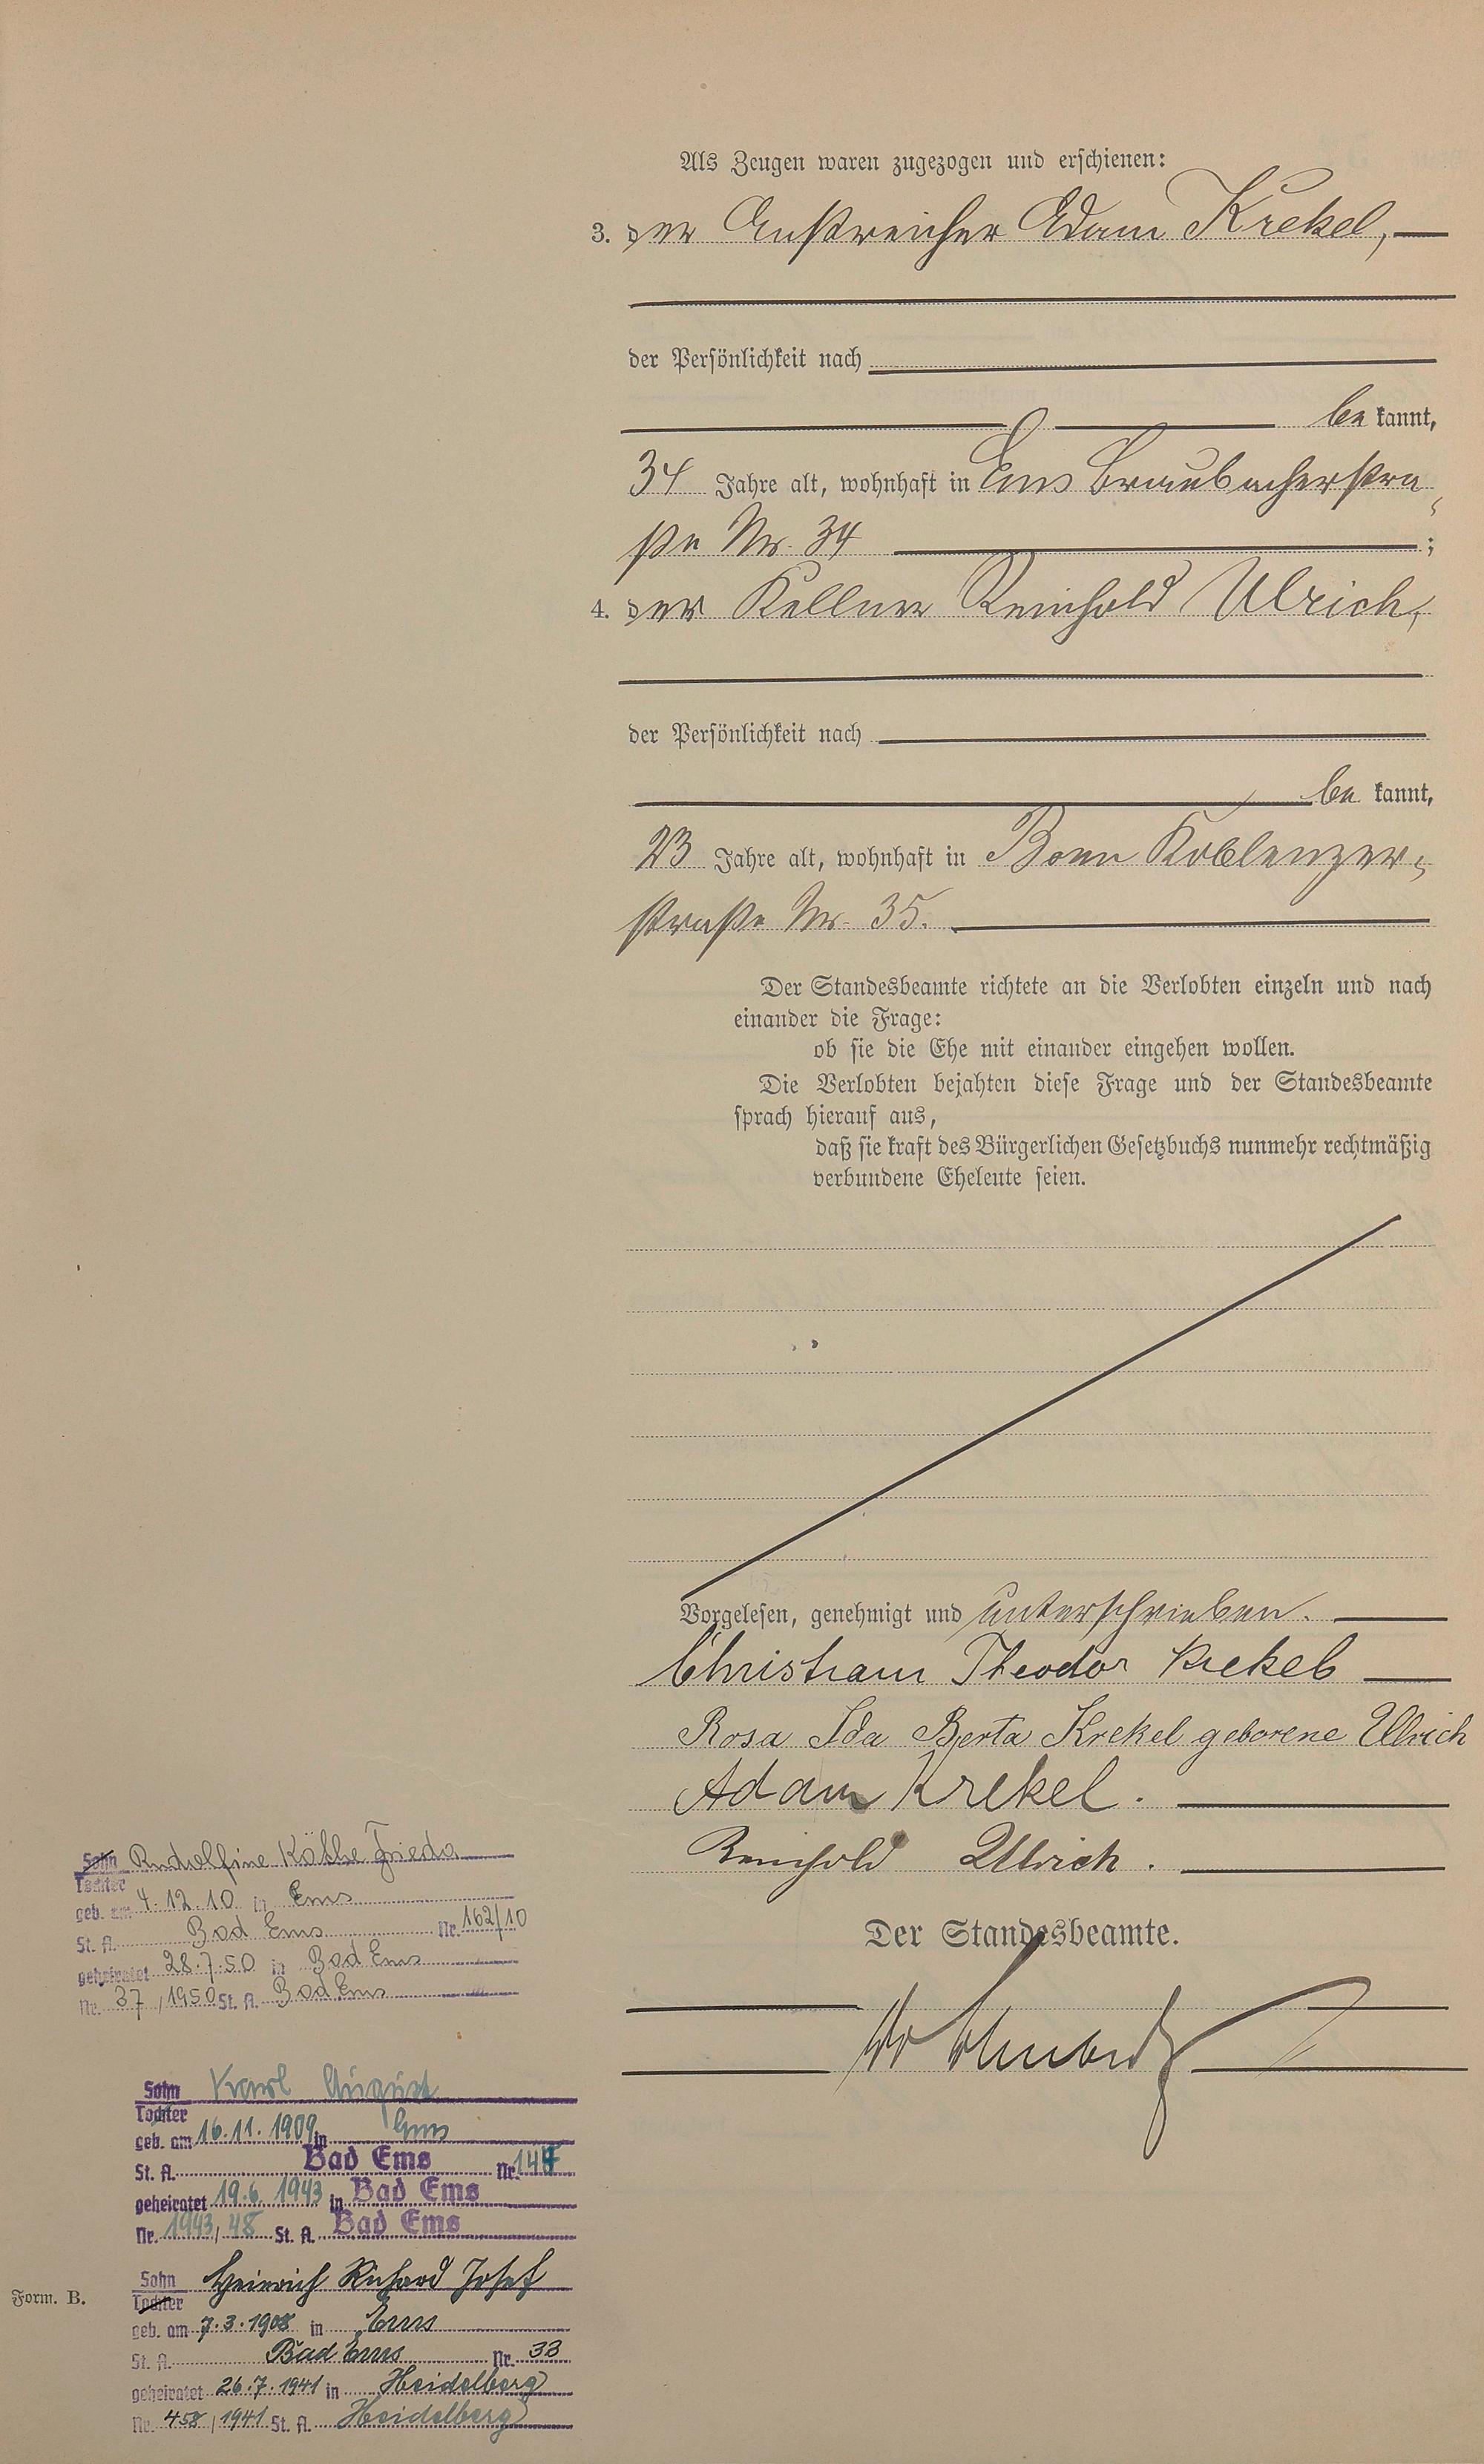 Als Zeugen waren zugezogen und erschienen:
3. der Anstreicher Adam Krekel,
der Persönlichkeit nach
be kannt,
34 Jahre alt, wohnhaft in Ems Braubacherstra-
ße Nr. 34 ;
4. der Kellner Reinhold Ulrich,
der Persönlichkeit nach
be kannt,
23 Jahre alt, wohnhaft in Bonn Koblenzer-
straße Nr. 35.
Der Standesbeamte richtete an die Verlobten einzeln und nach
einander die Frage:
ob sie die Ehe mit einander eingehen wollen.
Die Verlobten bejahten diese Frage und der Standesbeamte
sprach hierauf aus,
daß sie kraft des Bürgerlichen Gesetzbuchs nunmehr rechtmäßig
verbundene Eheleute seien.
Vorgelesen, genehmigt und unterschrieben.
Christian Theodor Krekel
Rosa Ida Berta Krekel geborene Ulrich
Adam Krekel.
Reinhold Ulrich.
Der Standesbeamte.
Sohn Rudolfine Käthe Frieda
Tochter
geb. am 4.12.10 in Ems
St. A. Bad Ems Nr. 162/10
geheiratet 28.7.50 in Bad Ems
Nr. 37/1950 St. A. Bad Ems
Sohn Karl August
Tochter
geb. am 16.11.1909 in Ems
St. A. Bad Ems Nr. 147
geheiratet 19.6.1943 in Bad Ems
Nr. 1943/48 St. A. Bad Ems
Sohn Heinrich Richard Josef
Tochter
geb. am 7.3.1908 in Ems
St. A. Bad Ems Nr. 33
geheiratet 26.7.1941 in Heidelberg
Nr. 458/1941 St. A. Heidelberg
Form. B.